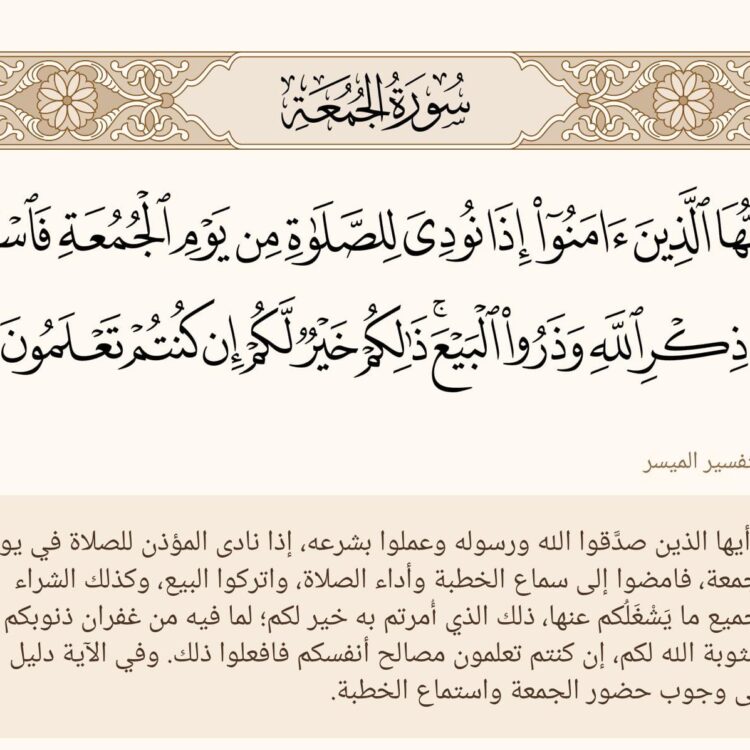 سُورَةُ الجُمُعَةِ
ٱلَّذِينَ ءَامَنُوٓا۟ إِذَا نُودِىَ لِلصَّلَوٰةِ مِن يَوْمِ ٱلْجُمُعَةِ
ذِكْرِ ٱللَّهِ وَذَرُوا۟ ٱلْبَيْعَ ۚ ذَٰلِكُمْ خَيْرٌ لَّكُمْ إِن كُنتُمْ تَعْلَمُونَ
الميسر
أيها الذين صدَّقوا الله ورسوله وعملوا بشرعه، إذا نادى المؤذن للصلاة في
فامضوا إلى سماع الخطبة وأداء الصلاة، واتركوا البيع، وكذلك الشراء
ما يَشْغَلُكم عنها، ذلك الذي أُمرتم به خير لكم؛ لما فيه من غفران ذنوبكم
الله لكم، إن كنتم تعلمون مصالح أنفسكم فافعلوا ذلك. وفي الآية دليل
وجوب حضور الجمعة واستماع الخطبة.